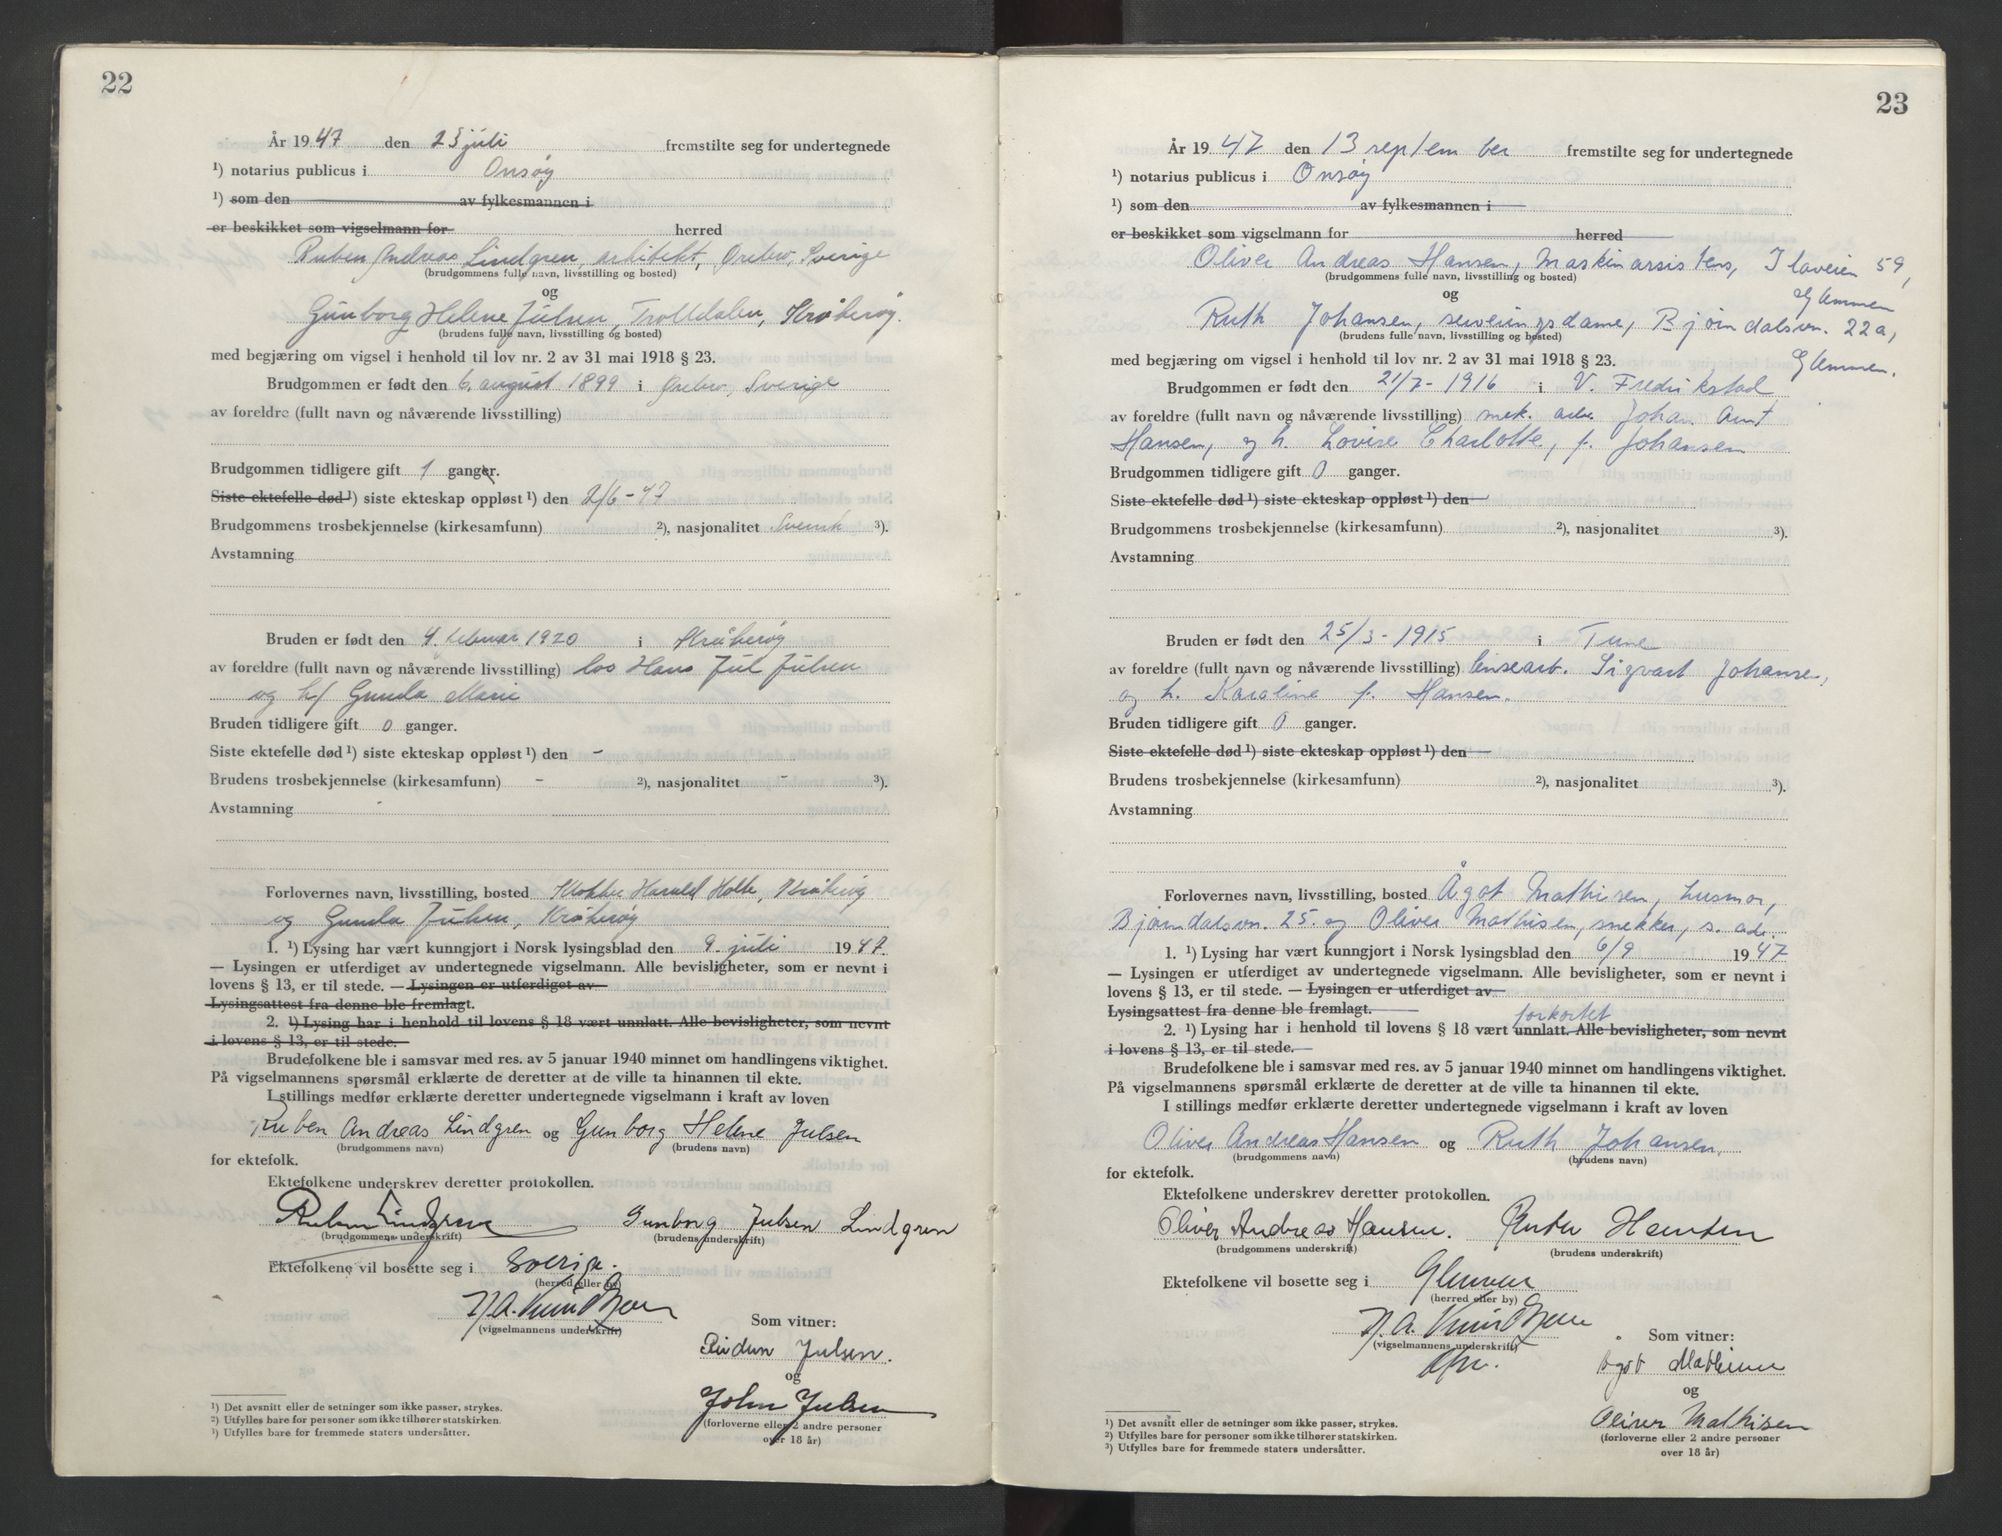 22
År 1947 den 23 juli fremstilte seg for undertegnede
¹) notarius publicus i Onsøy
¹) som den av fylkesmannen i
er beskikket som vigselmann for herred
Ruben Andreas Lindgren, arkitekt, Ørebro, Sverige
(brudgommens fulle navn, livsstilling og bosted)
og
Gunborg Helene Julsen, Trolldalen, Kråkerøy.
(brudens fulle navn, livsstilling og bosted)
med begjæring om vigsel i henhold til lov nr. 2 av 31 mai 1918 § 23.
Brudgommen er født den 6. august 1899 i Ørebro, Sverige
av foreldre (fullt navn og nåværende livsstilling)
Brudgommen tidligere gift 1 ganger.
Siste ektefelle død ¹) siste ekteskap oppløst ¹) den 2/6-47
Brudgommens trosbekjennelse (kirkesamfunn) ²), nasjonalitet Svensk ³).
Avstamning
Bruden er født den 4. februar 1920 i Kråkerøy
av foreldre (fullt navn og nåværende livsstilling) los Hans Jul Julsen
og h/ Gunda Marie
Bruden tidligere gift 0 ganger.
Siste ektefelle død ¹) siste ekteskap oppløst ¹) den -
Brudens trosbekjennelse (kirkesamfunn) - ²), nasjonalitet - ³).
Avstamning -
Forlovernes navn, livsstilling, bosted Klokker Harald Holte, Kråkerøy
og Gunda Julsen, Kråkerøy
1. ¹) Lysing har vært kunngjort i Norsk lysingsblad den 9. juli 1947.
— Lysingen er utferdiget av undertegnede vigselmann. Alle bevisligheter, som er nevnt i
lovens § 13, er til stede. — Lysingen er utferdiget av
Lysingsattest fra denne ble fremlagt.
2. ¹) Lysing har i henhold til lovens § 18 vært unnlatt. Alle bevisligheter, som nevnt
i lovens § 13, er til stede.
Brudefolkene ble i samsvar med res. av 5 januar 1940 minnet om handlingens viktighet.
På vigselmannens spørsmål erklærte de deretter at de ville ta hinannen til ekte.
I stillings medfør erklærte deretter undertegnede vigselmann i kraft av loven
Ruben Andreas Lindgren og Gunborg Helene Julsen
(brudgommens navn) (brudens navn)
for ektefolk.
Ektefolkene underskrev deretter protokollen.
Ruben Lindgren Gunborg Julsen Lindgren
(brudgommens underskrift) (brudens underskrift)
Ektefolkene vil bosette seg i Sverige.
(herred eller by)
N.A. Knudtzen
(vigselmannens underskrift)
Som vitner:
Julsen.
og
John Julsen
(forloverne eller 2 andre personer
over 18 år)
¹) Det avsnitt eller de setninger som ikke passer, strykes.
²) Utfylles bare for personer som ikke tilhører statskirken.
³) Utfylles bare for fremmede staters undersåtter.
23
År 1947 den 13 september fremstilte seg for undertegnede
¹) notarius publicus i Onsøy
¹) som den av fylkesmannen i
er beskikket som vigselmann for herred
Oliver Andreas Hansen, maskinassistens, Ilaveien 59,
(brudgommens fulle navn, livsstilling og bosted)
Glemmen
og
Ruth Johansen, serveringsdame, Bjørndalsvn. 22a,
(brudens fulle navn, livsstilling og bosted)
Glemmen.
med begjæring om vigsel i henhold til lov nr. 2 av 31 mai 1918 § 23.
Brudgommen er født den 21/7-1916 i V. Fredrikstad
av foreldre (fullt navn og nåværende livsstilling) mek. arb. Johan Arnt
Hansen, og h. Lovise Charlotte, f. Johansen
Brudgommen tidligere gift 0 ganger.
Siste ektefelle død ¹) siste ekteskap oppløst ¹) den
Brudgommens trosbekjennelse (kirkesamfunn) ²), nasjonalitet ³).
Avstamning
Bruden er født den 25/3-1915 i Tune
av foreldre (fullt navn og nåværende livsstilling) lensearb. Sigvart Johansen,
og h. Karoline f. Hansen.
Bruden tidligere gift 0 ganger.
Siste ektefelle død ¹) siste ekteskap oppløst ¹) den
Brudens trosbekjennelse (kirkesamfunn) ²), nasjonalitet ³).
Avstamning
Forlovernes navn, livsstilling, bosted Ågot Mathisen, husmor,
Bjørndalsvn. 25. og Oliver Mathisen, snekker, s. adr.
1. ¹) Lysing har vært kunngjort i Norsk lysingsblad den 6/9 1947
— Lysingen er utferdiget av undertegnede vigselmann. Alle bevisligheter, som er nevnt i
lovens § 13, er til stede. — Lysingen er utferdiget av
Lysingsattest fra denne ble fremlagt.
forkortet
2. ¹) Lysing har i henhold til lovens § 18 vært unnlatt. Alle bevisligheter, som nevnt
i lovens § 13, er til stede.
Brudefolkene ble i samsvar med res. av 5 januar 1940 minnet om handlingens viktighet.
På vigselmannens spørsmål erklærte de deretter at de ville ta hinannen til ekte.
I stillings medfør erklærte deretter undertegnede vigselmann i kraft av loven
Oliver Andreas Hansen og Ruth Johansen,
(brudgommens navn) (brudens navn)
for ektefolk.
Ektefolkene underskrev deretter protokollen.
Oliver Andreas Hansen. Ruth Hansen
(brudgommens underskrift) (brudens underskrift)
Ektefolkene vil bosette seg i Glemmen
(herred eller by)
N.A. Knudtzen
(vigselmannens underskrift)
Som vitner:
Ågot Mathisen
og
Oliver Mathisen
(forloverne eller 2 andre personer
over 18 år)
¹) Det avsnitt eller de setninger som ikke passer, strykes.
²) Utfylles bare for personer som ikke tilhører statskirken.
³) Utfylles bare for fremmede staters undersåtter.